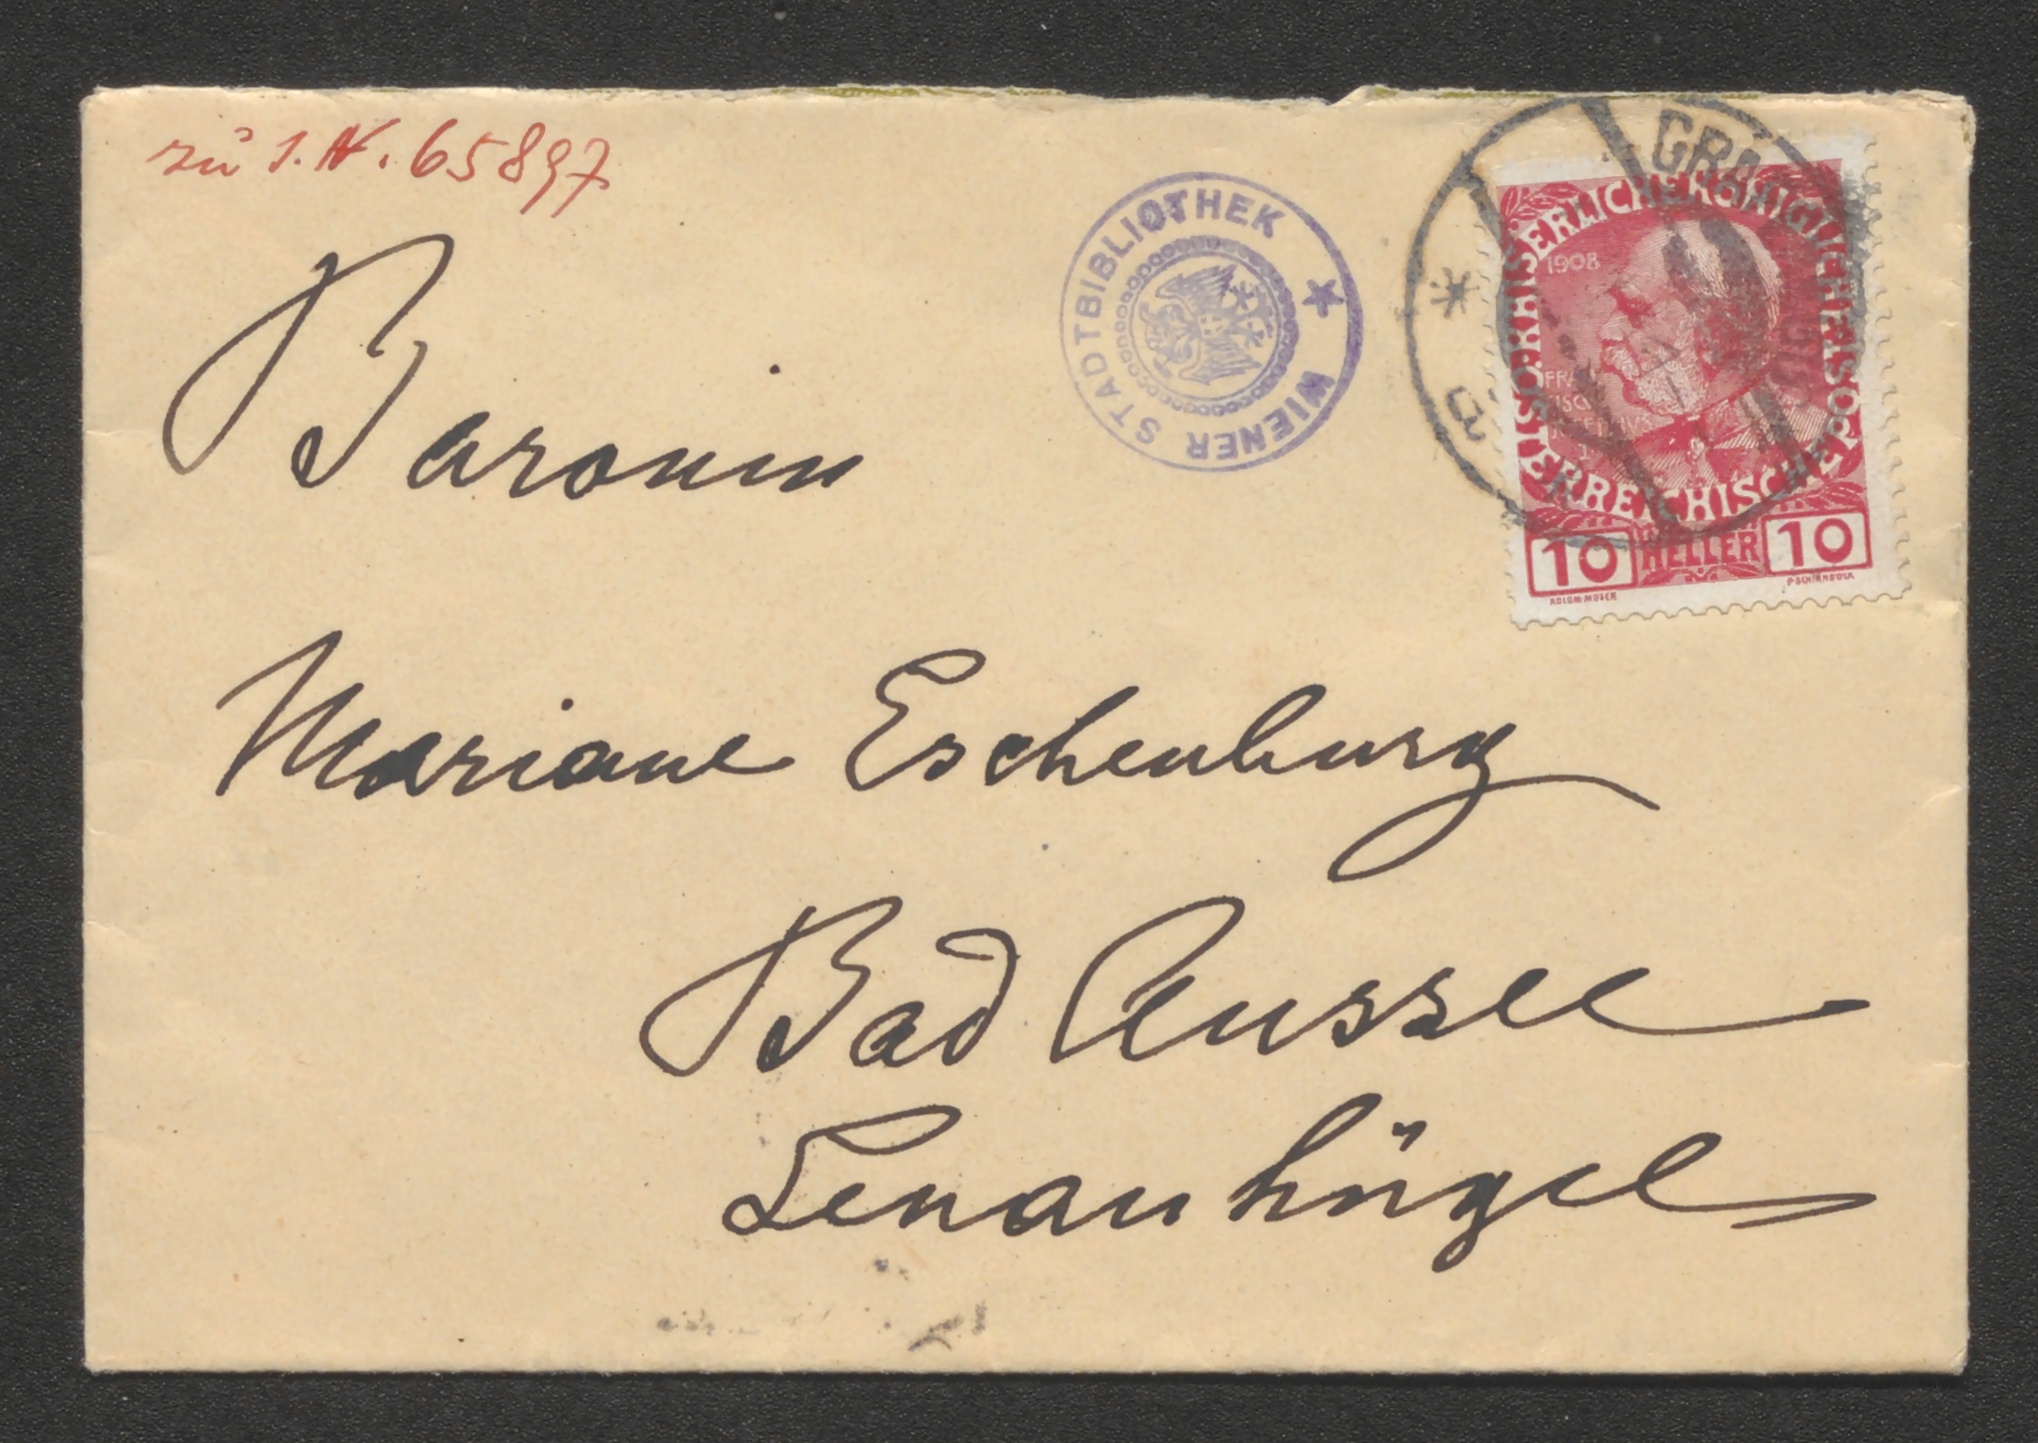 zu I.N. 65897
WIENER STADTBIBLIOTHEK
KAISERLICHE KÖNIGLICHE ÖSTERREICHISCHE POST
1908
10 HELLER 10
KOLOM·MOSER
Baronin
Mariane Eschenburg
Bad Aussee
Lenauhügel